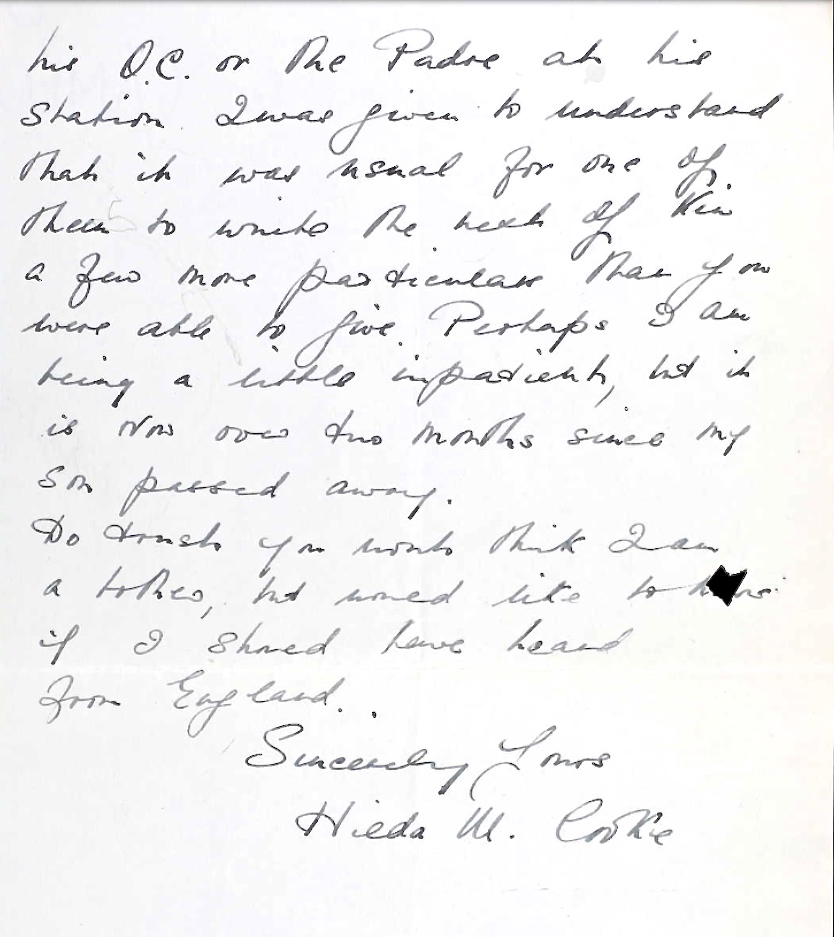 his O.C. or the Padre at his
station. I was given to understand
that it was usual for one of
them to write the next of kin
a few more particulars than you
were able to give. Perhaps I am
being a little impatient, but it
is now over two months since my
son passed away.
Do trust you wont think I am
a bother, but would like to
if I should have heard
from England.
Sincerely Yours
Hilda M.